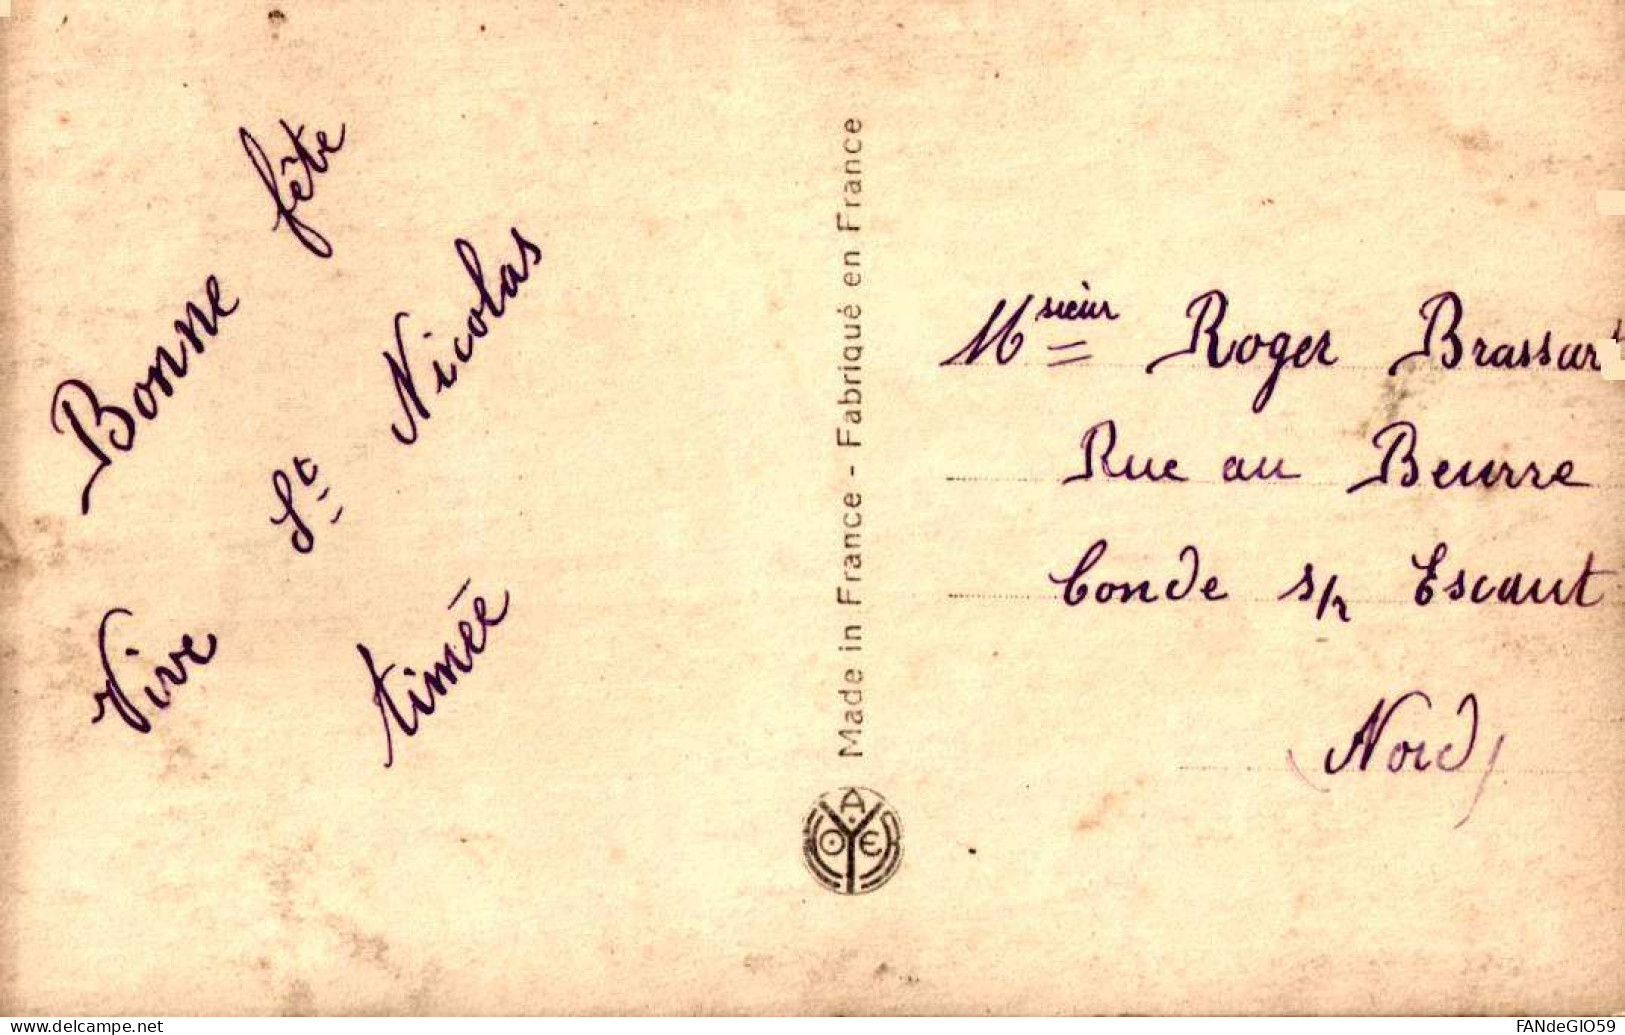 Bonne fête
Vive St Nicolas
timée
Made in France - Fabriqué en France
A
O E
Msieur Roger Brassart
Rue au Beurre
Conde s/r Escaut
(Nord)
www.delcampe.net
FANdeGIO59